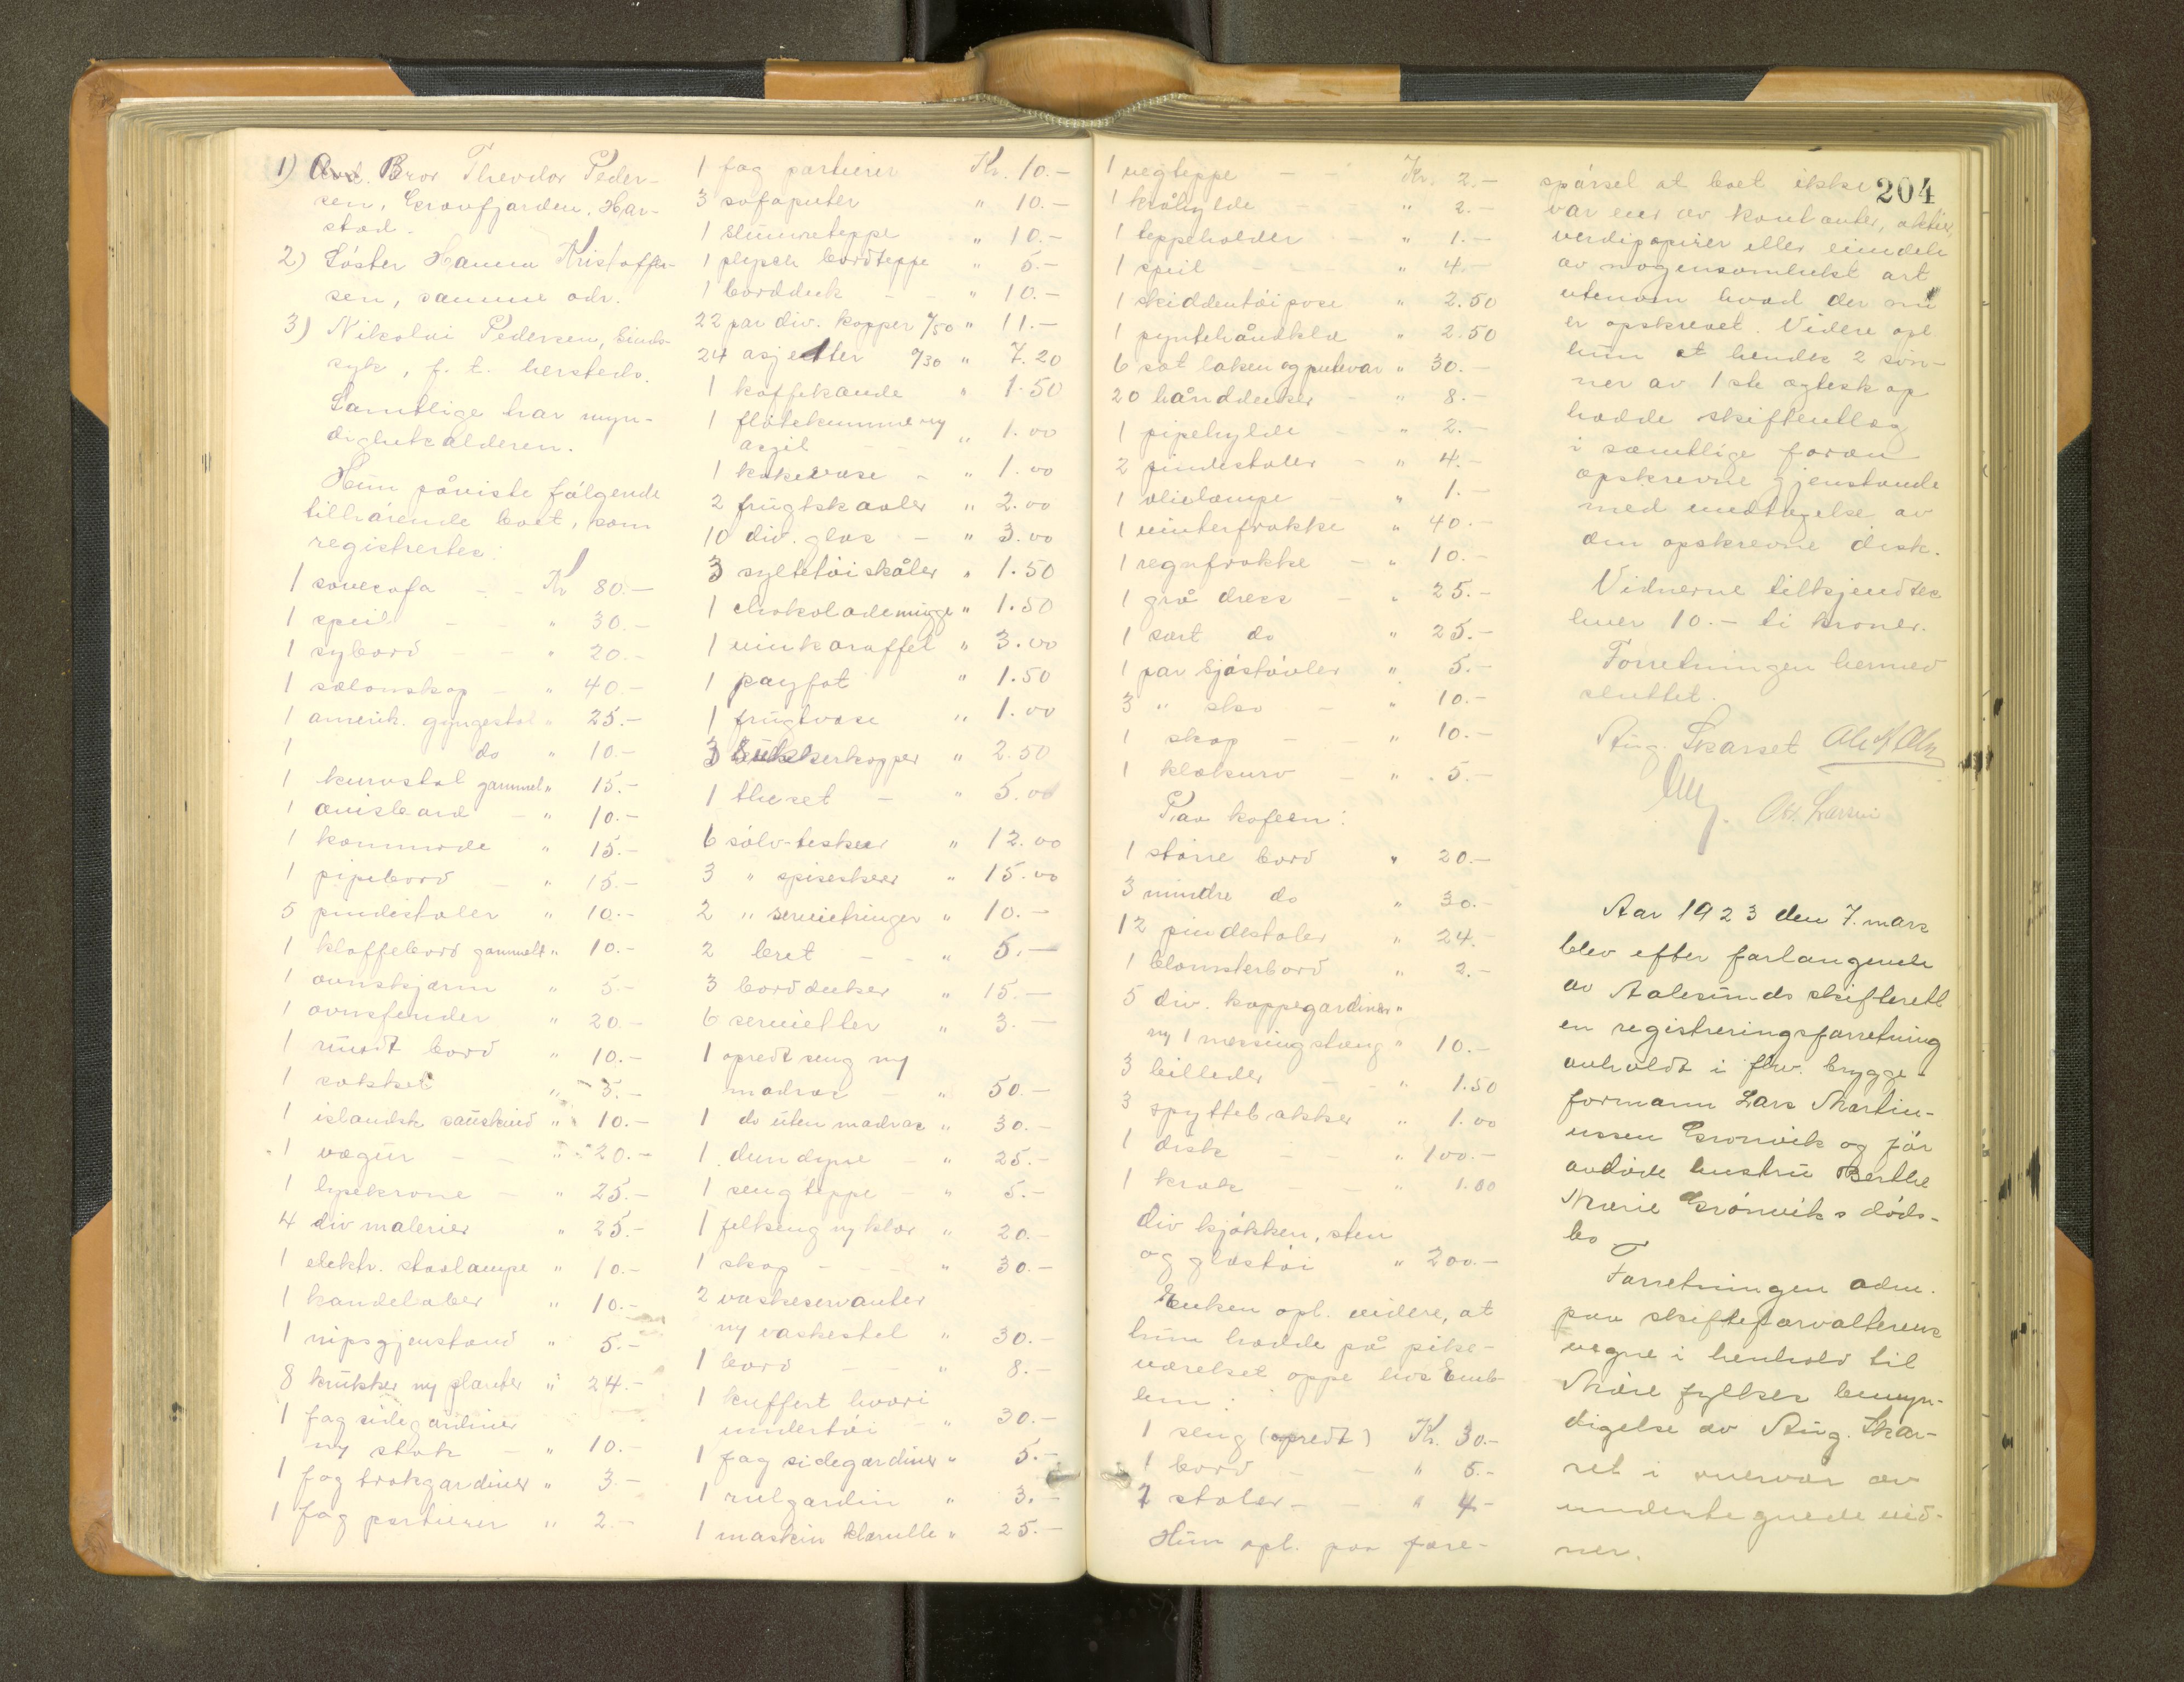 1) Bror Theodor Peder-
sen, Gravfjorden, Har-
stad.
2) Söster Hanna Kristoffer-
sen, samme adr.
3) Nikolai Pedersen, sinds-
syk, f. t. hersteds.
Samtlige har myn-
dighetsalderen.
Hun påviste fölgende
tilhörende boet, som
registrertes:
1 sovesofa - - Kr 80.-
1 speil - - " 30.-
1 sybord - - " 20.-
1 salonskap - " 40.-
1 amerik. gyngestol " 25.-
1 do " 10.-
1 kurvstol gammel " 15.-
1 avisbord - " 10.-
1 kommode " 15.-
1 pipebord - " 15.-
5 pindestoler " 10.-
1 klaffebord gammelt " 10.-
1 ovnskjærm " 5.-
1 ovnsfender " 20.-
1 rundt bord " 10.-
1 sokkel " 5.-
1 islandsk saueskind " 10.-
1 vægur - - " 20.-
1 lysekrone - " 25.-
4 div malerier " 25.-
1 elektr. staalampe " 10.-
1 kandelaber " 10.-
1 nipsgjenstand " 5.-
8 krukker m/ planter " 24.-
1 fag sidegardiner
m/ stok - " 10.
1 fag trækgardiner " 3.-
1 fag portierer " 2.-
1 fag portierer Kr. 10.-
3 sofaputer " 10.-
1 slumreteppe " 10.-
1 plysch bordteppe " 5.-
1 bordduk - - " 10.-
22 par div. kopper a/50 " 11.-
24 asjetter a/30 " 7.20
1 kaffekande " 1.50
1 flötekumme m/
asjet - " 1.00
1 kakevase - " 1.00
2 frugtskaaler " 2.00
10 div. glas - " 3.00
3 syltetöiskåler " 1.50
1 chokolademugge " 1.50
1 vinkaraffel " 3.00
1 kagfat " 1.50
1 frugtvase " 1.00
3 Sukkerkopper " 2.50
1 theset - " 5.00
6 sölv-teskeer " 12.00
3 " spiseskeer " 15.00
2 " servietringer " 10.-
2 bret - - " 5.-
3 bordduker " 15.-
6 servietter " 3.-
1 opredt seng m/
madras - " 50.-
1 do uten madras " 30.-
1 dundyne - " 25.-
1 sengteppe - " 5.-
1 feltseng m/klær " 20.-
1 skap - - " 30.-
2 vaskeservanter
m/ vaskestel " 30.-
1 bord - " 8.-
1 kuffert hvori
undertöi - " 30.-
1 fag sidegardiner " 5.-
1 rulgardin " 3.-
1 maskin klærulle " 25.-
1 vegteppe - - Kr. 2.-
1 kråhylde - - " 2.-
1 teppeholder - " 1.-
1 speil - - " 4.-
1 skiddentöipose " 2.50
1 pyntehåndklæ " 2.50
6 sæt laken og putevar " 30.-
20 hånddukser - " 8.-
1 pipehylde - - " 2.-
2 pindestoler - " 4.-
1 olielampe - " 1.-
1 vinterfrakke " 40.-
1 regnfrakke - " 10.-
1 grå dress - " 25.-
1 sort do " 25.-
1 par sjöstövler " 5.-
3 " sko - " 10.-
1 skap - - " 10.-
1 klækurv - " 5.-
Paa kafeen:
1 större bord " 20.-
3 mindre do " 30.-
12 pindestoler " 24.-
1 blomsterbord " 2.-
5 div. kappegardiner "
m/ 1 messingstang " 10.-
3 billeder - - " 1.50
3 spyttebakker " 1.00
1 disk - - " 100.-
1 krak - - " 1.00
div kjökken, sten
og glastöi " 200.-
Enken opl. videre, at
hun hadde på pike-
værelset oppe hos Emb-
lem:
1 seng (opredt) Kr. 30.-
1 bord - - " 5.-
2 stoler - - " 4.-
Hun opl. paa fore-
204
spörsel at boet ikke
var eier av kontanter, aktier,
verdipapirer eller eiendele
av nogensomhelst art
utenom hvad der nu
er opskrevet. Videre opl
hun at hendes 2 sön-
ner av 1ste egteskap
hadde skifteutlæg
i samtlige foran
opskrevne gjenstande
med undtagelse av
den opskrevne disk.
Vidnerne tilkjendtes
hver 10.- ti kroner.
Forretningen hermed
sluttet.
Aug. Skarset
O. Larsen
Aar 1923 den 7. mars
blev efter forlangende
av Aalesunds skifterett
en registreringsforretning
avholdt i fhv. brygge-
formann Lars Martin-
ussen Grönvik og för
avdöde hustru Berthe
Marie Grönviks döds-
bo.
Forretningen adm.
paa skifteforvalterens
vegne i henhold til
Möre fylkes bemyn-
digelse av Aug. Skar-
set i overvær av
undertegnede vid-
ner.